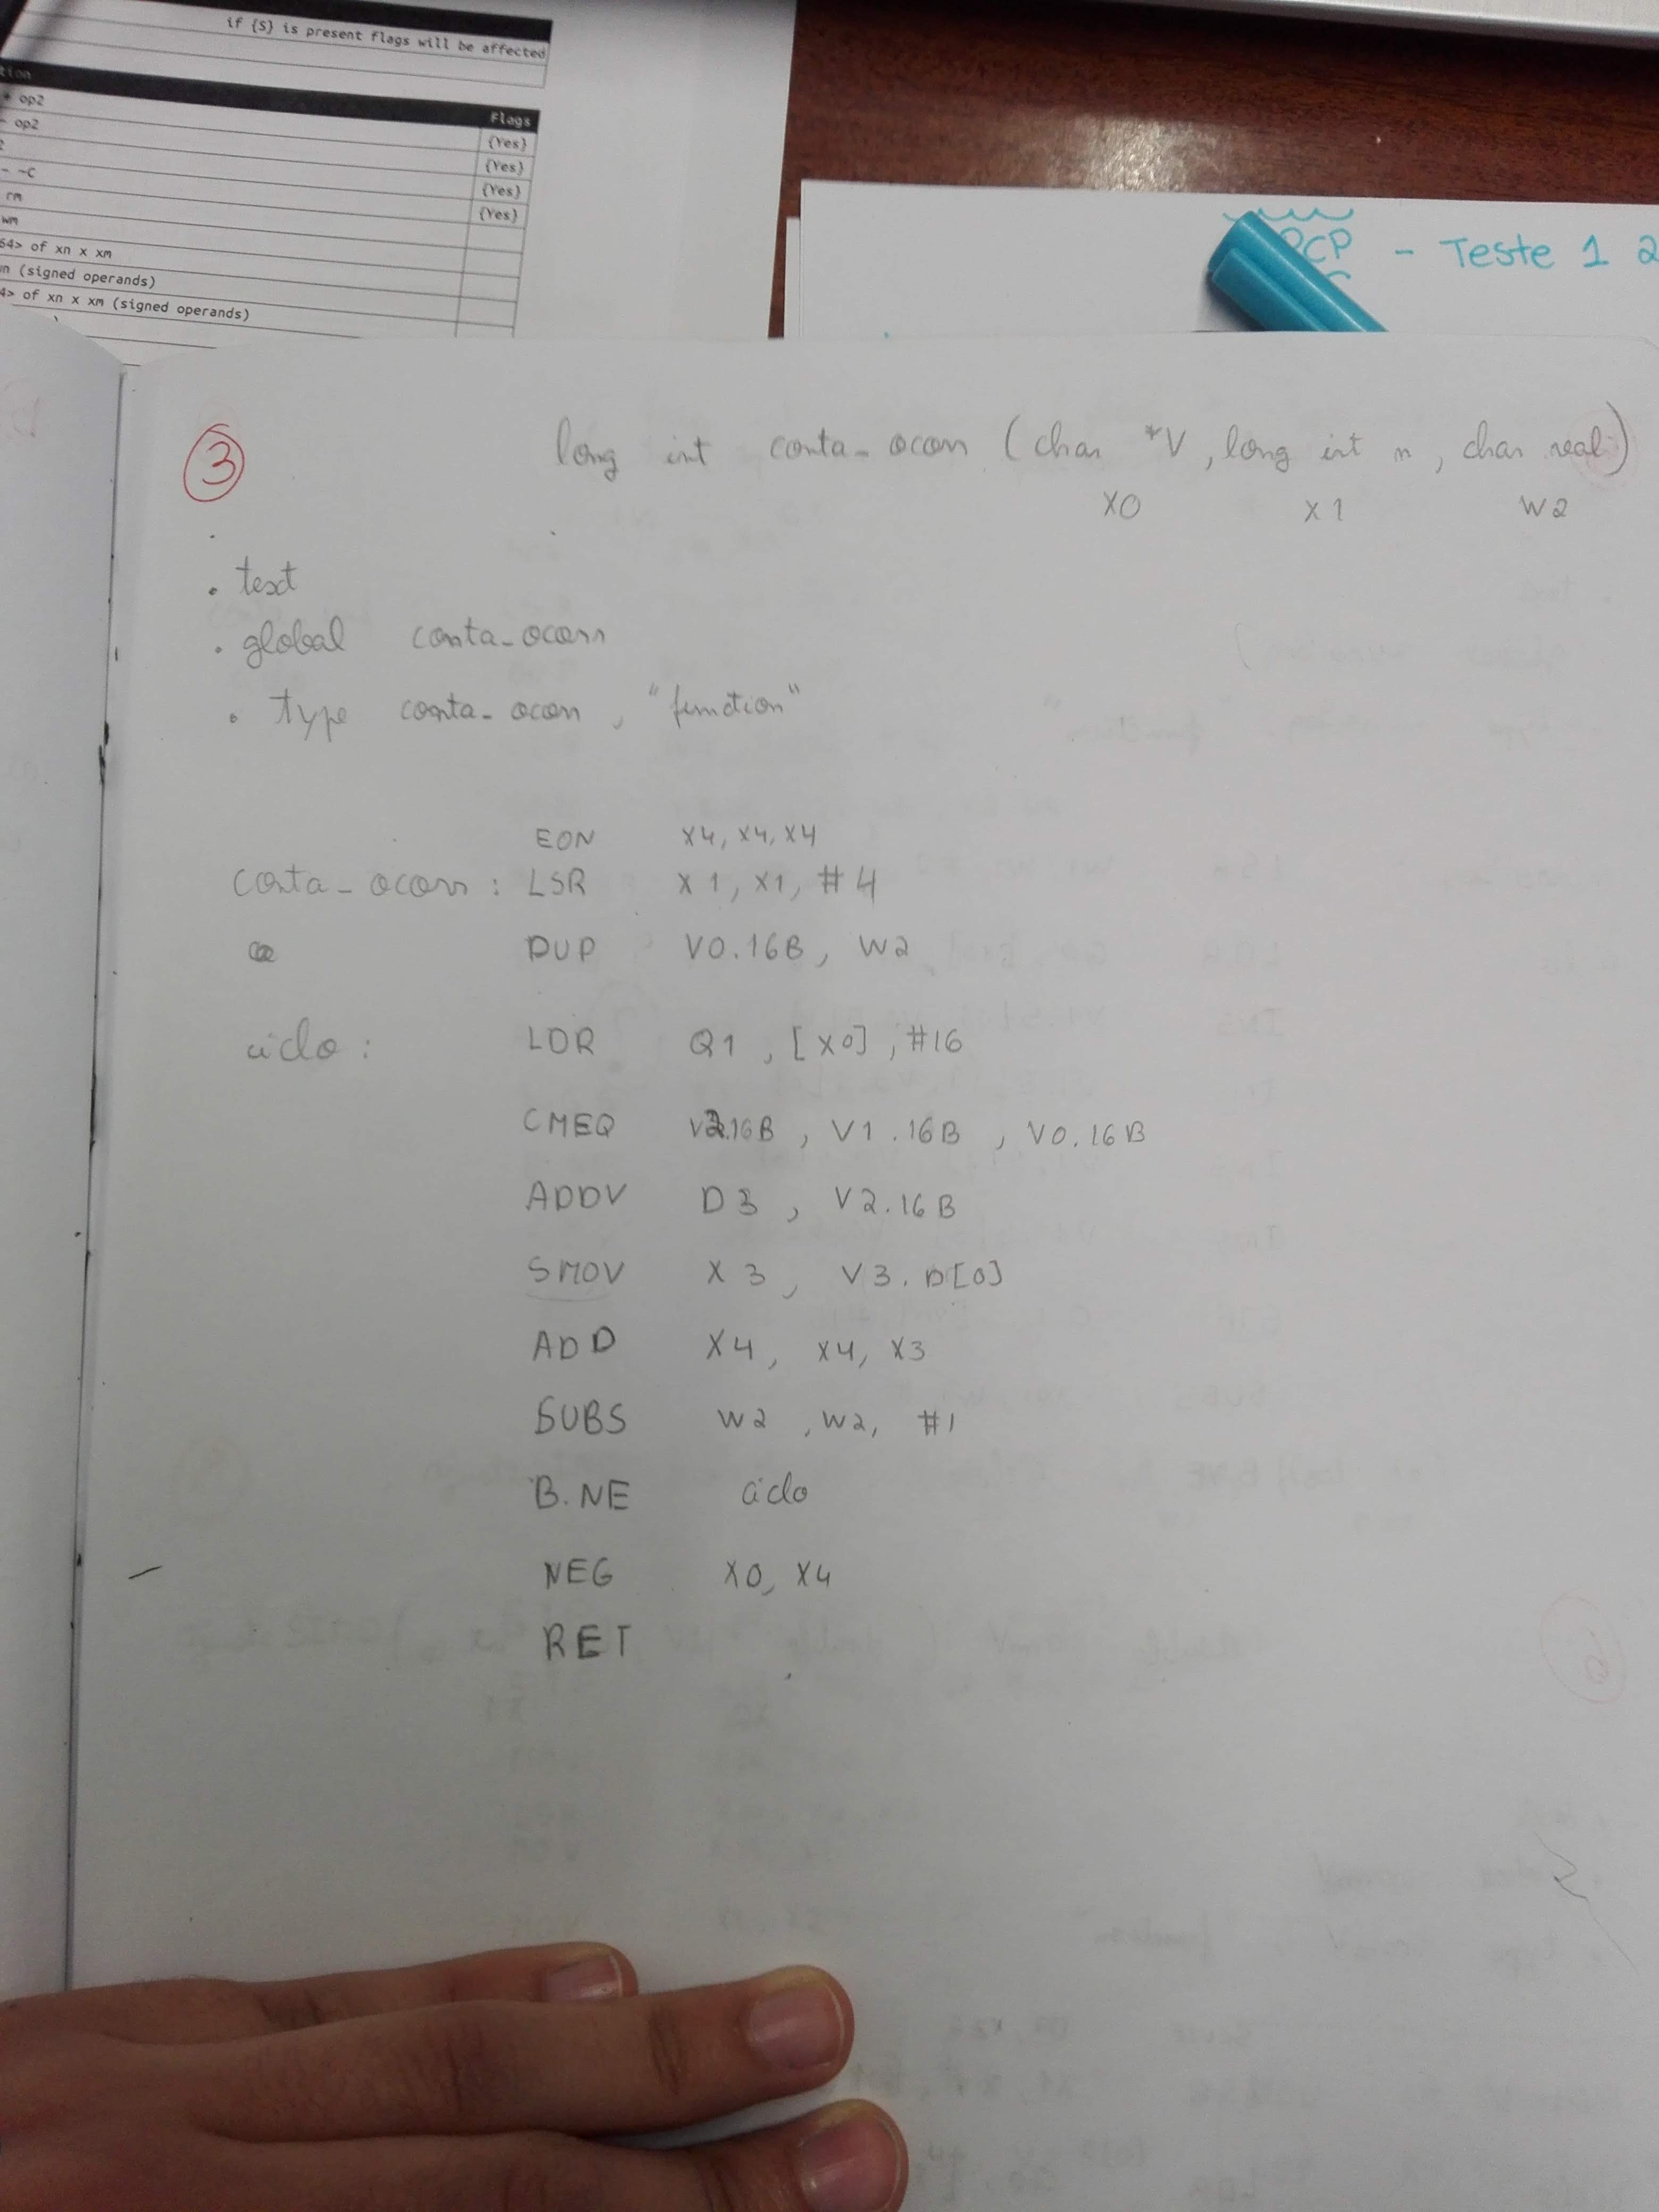 if {S} is present flags will be affected
tion
+ op2 Flags
- op2 {Yes}
{Yes}
- ~C {Yes}
rm {Yes}
wm
64> of xn x xm
(signed operands)
4> of xn x xm (signed operands)
PCP - Teste 1 2
3
long int conta-ocorr (char *V, long int n, char real)
X0 X1 W2
.text
.global conta-ocorr
.type conta-ocorr, "function"
EON X4, X4, X4
conta-ocorr: LSR X1, X1, #4
DUP V0.16B, W2
ciclo: LDR Q1, [X0], #16
CMEQ V2.16B, V1.16B, V0.16B
ADDV D3, V2.16B
SMOV X3, V3.D[0]
ADD X4, X4, X3
SUBS W2, W2, #1
B.NE ciclo
NEG X0, X4
RET